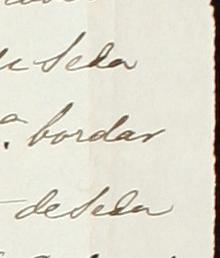 de Seda
a. bordar
de Seda